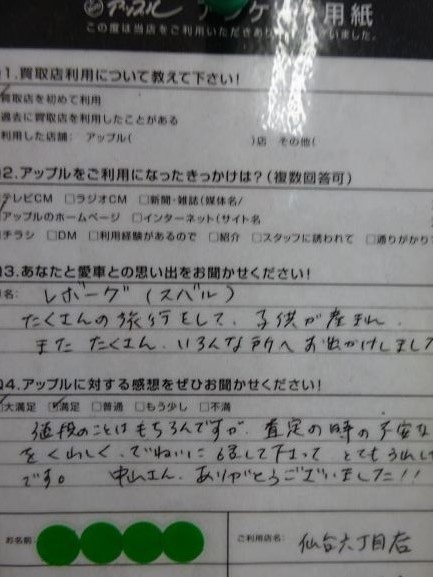 アップル アンケート用紙
この度は当店をご利用いただきありがとうございました。
1.買取店利用について教えて下さい!
買取店を初めて利用
過去に買取店を利用したことがある
利用した店舗： アップル( )店 その他(
2.アップルをご利用になったきっかけは?(複数回答可)
テレビCM □ラジオCM □新聞・雑誌(媒体名/
アップルのホームページ □インターネット(サイト名
チラシ □DM □利用経験があるので □紹介 □スタッフに誘われて □通りがかり
3.あなたと愛車との思い出をお聞かせください!
名: レボーグ(スバル)
たくさんの旅行をして、子供が産まれ、
また たくさん、いろんな所へ お出かけしました
Q4.アップルに対する感想をぜひお聞かせください!
大満足 □満足 □普通 □もう少し □不満
値段のことはもちろんですが、査定の時の不安な
をくわしく、ていねいに 話して下さって とてもうれし
です。 中山さん、ありがとうございました!!
お名前
ご利用店名: 仙台六丁目店